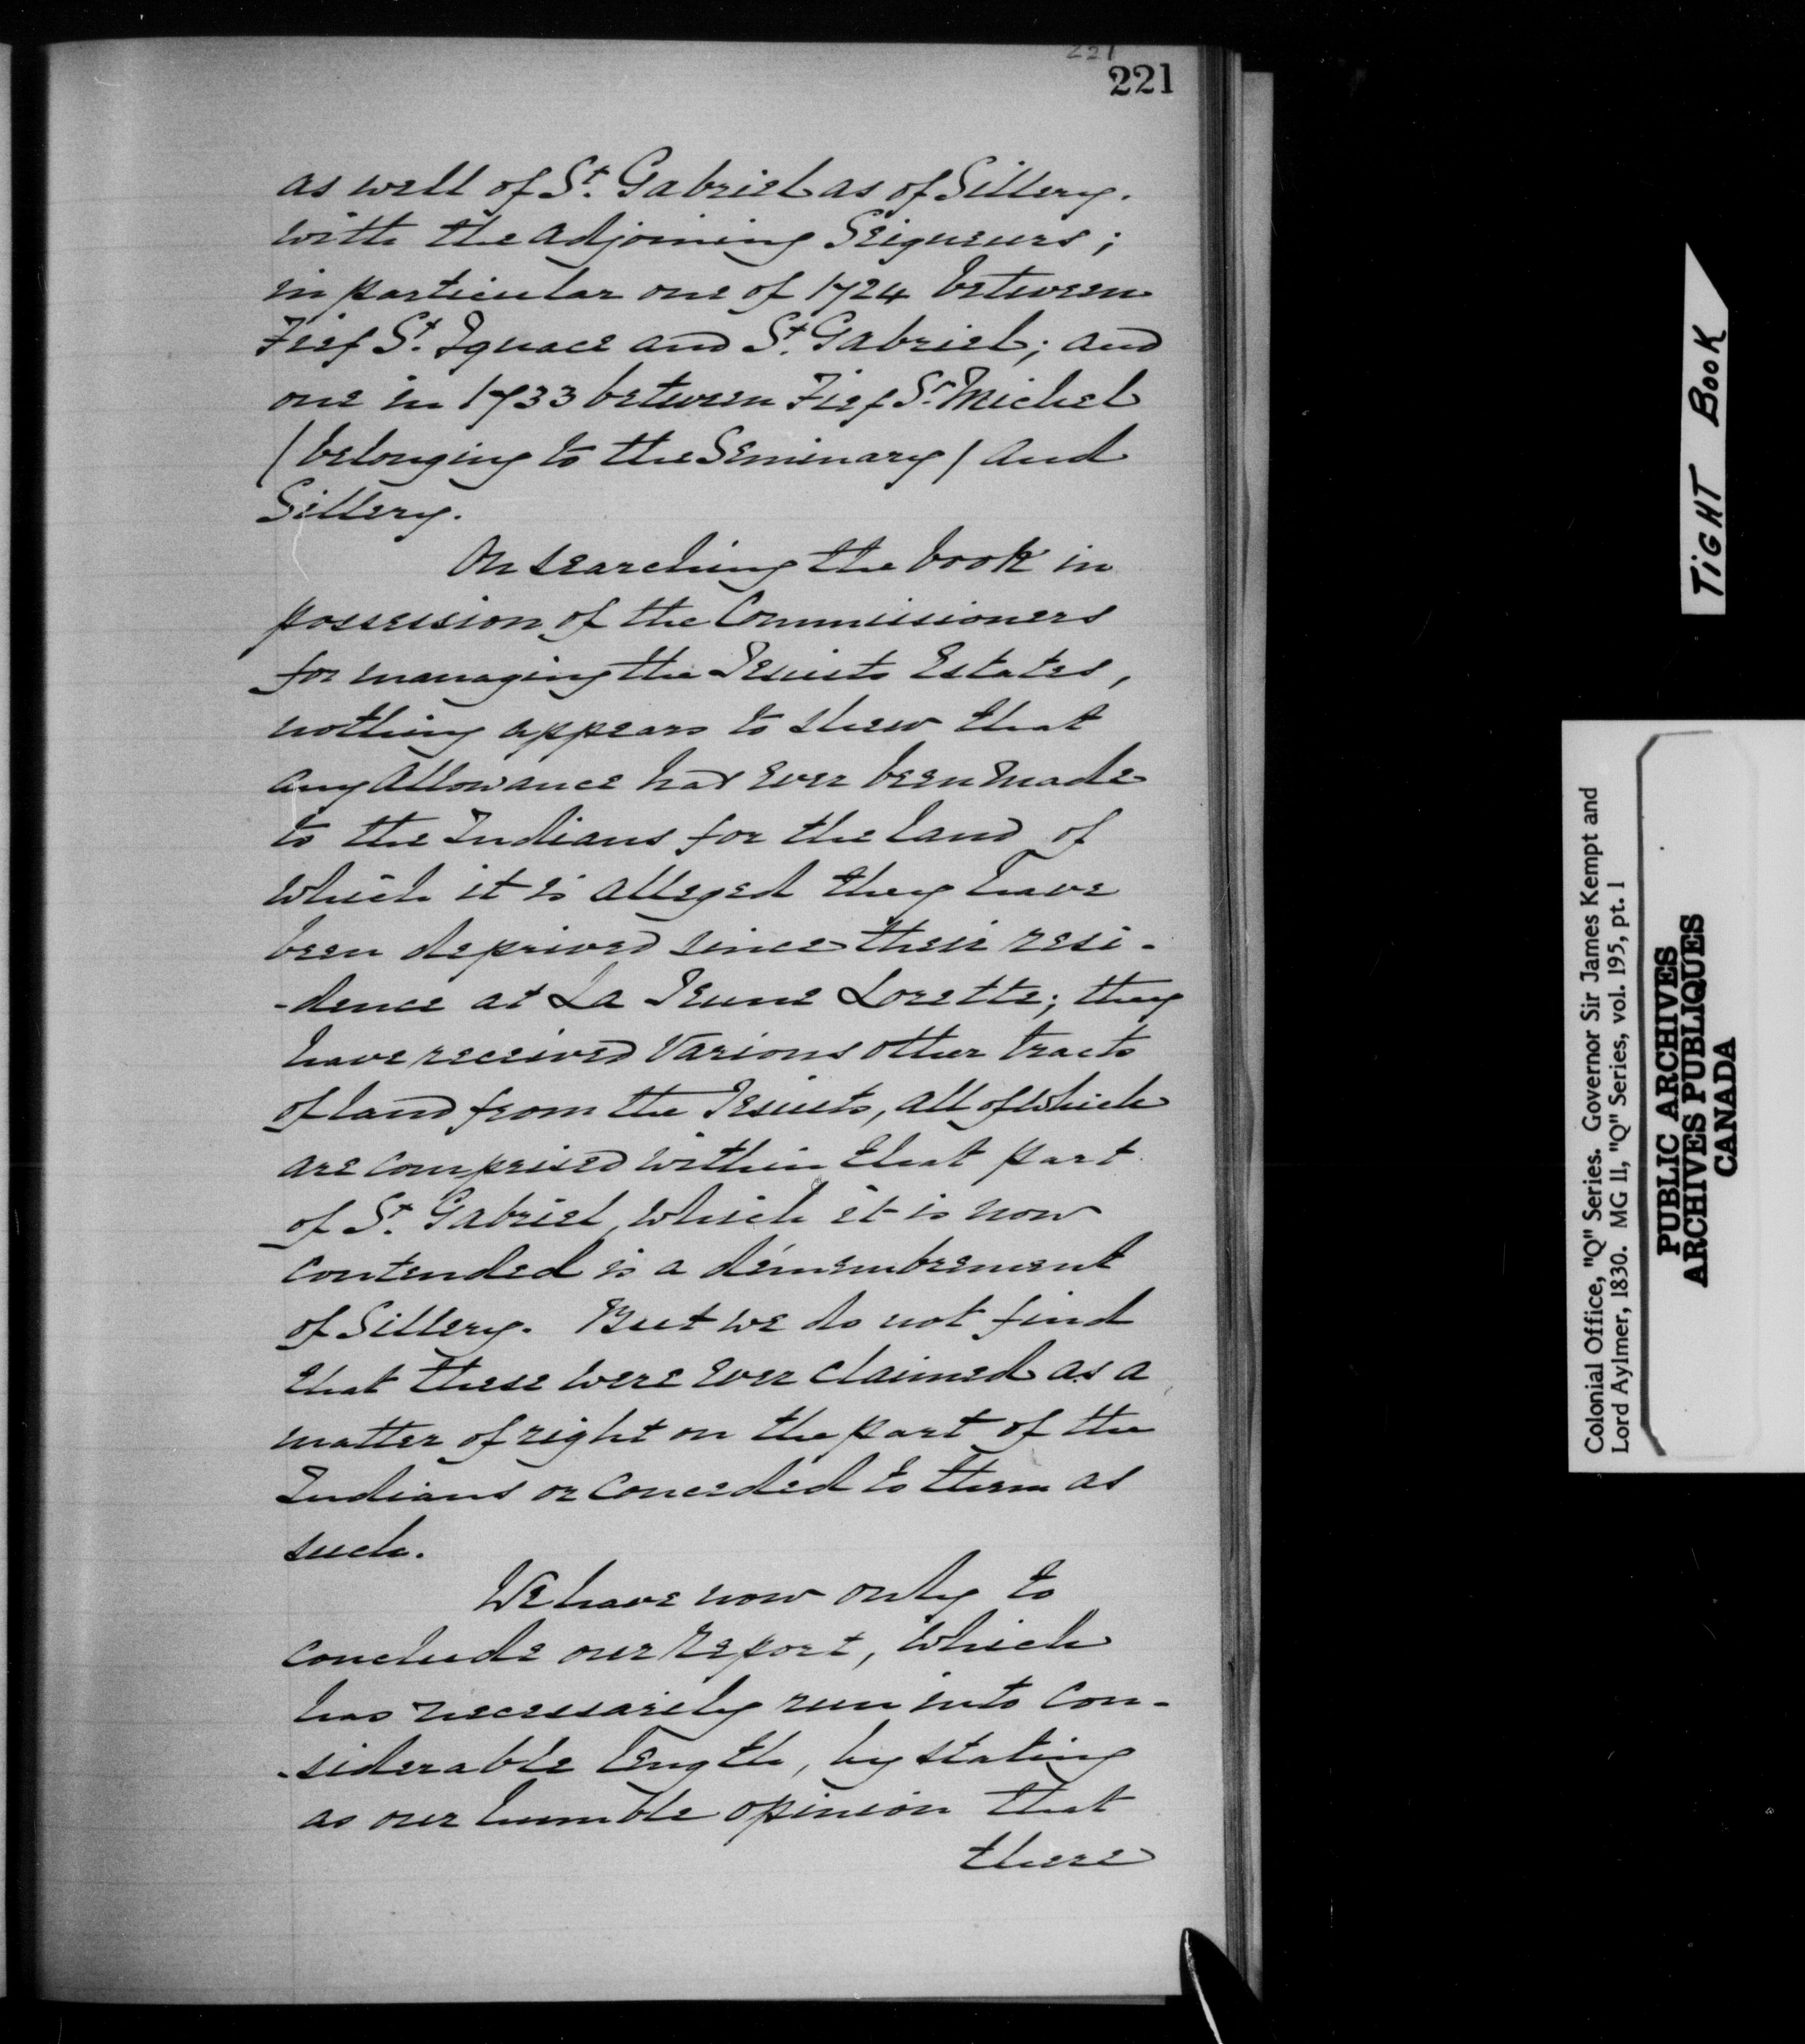 221
221
as well of St. Gabriel as of Sillery.
with the adjoining Seigneurs;
in particular one of 1724 between
Fief St. Ignace and St. Gabriel; and
one in 1733 between Fief St. Michel
(belonging to the Seminary) and
Sillery.
On searching the book in
possession of the Commissioners
for managing the Jesuits Estates,
nothing appears to shew that
any allowance has ever been made
to the Indians for the land of
which it is alleged they have
been deprived since their resi-
-dence at La Jeune Lorette; they
have received various other tracts
of land from the Jesuits, all of which
are comprised within that part
of St. Gabriel, which it is now
contended is a démembrement
of Sillery. But we do not find
that these were ever claimed as a
matter of right on the part of the
Indians or conceded to them as
such.
We have now only to
conclude our report, which
has necessarily run into con-
-siderable length, by stating
as our humble opinion that
there
TIGHT BOOK
Colonial Office, "Q" Series. Governor Sir James Kempt and
Lord Aylmer, 1830. MG 11, "Q" Series, vol. 195, pt. 1
PUBLIC ARCHIVES
ARCHIVES PUBLIQUES
CANADA